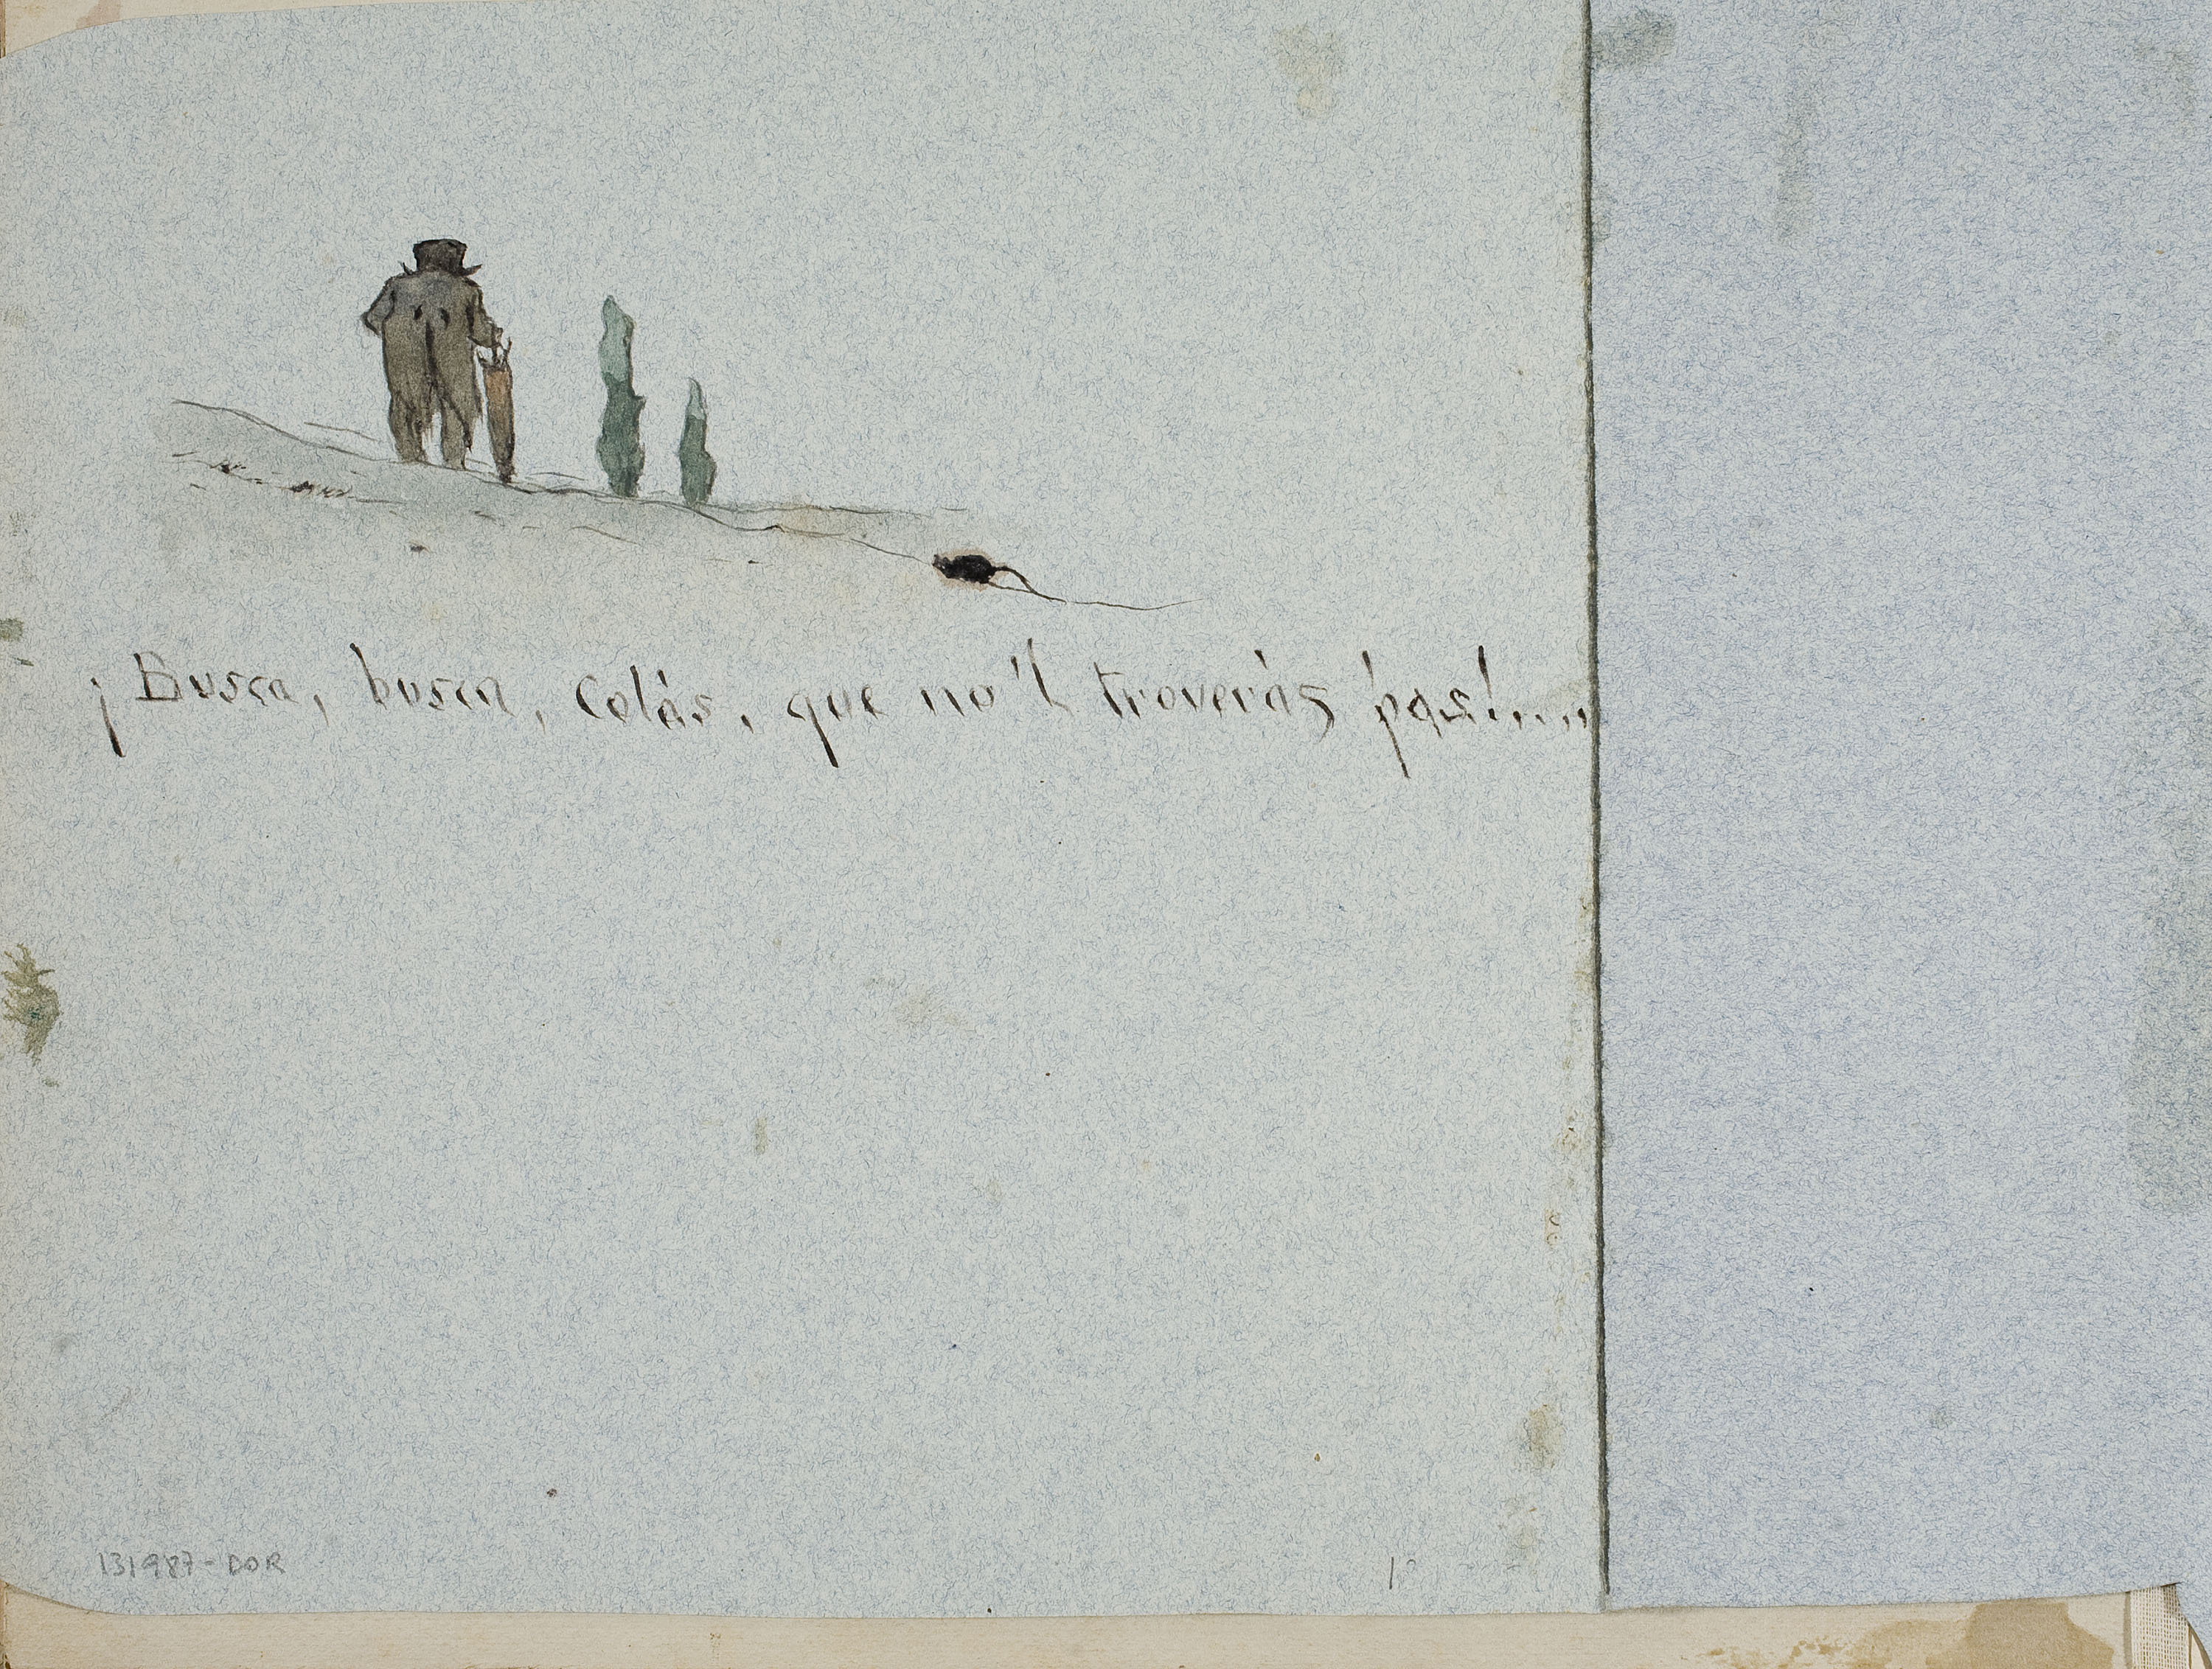 ¡Busca, busca, Colás, que no'l troverás pas!....
131987-DOR